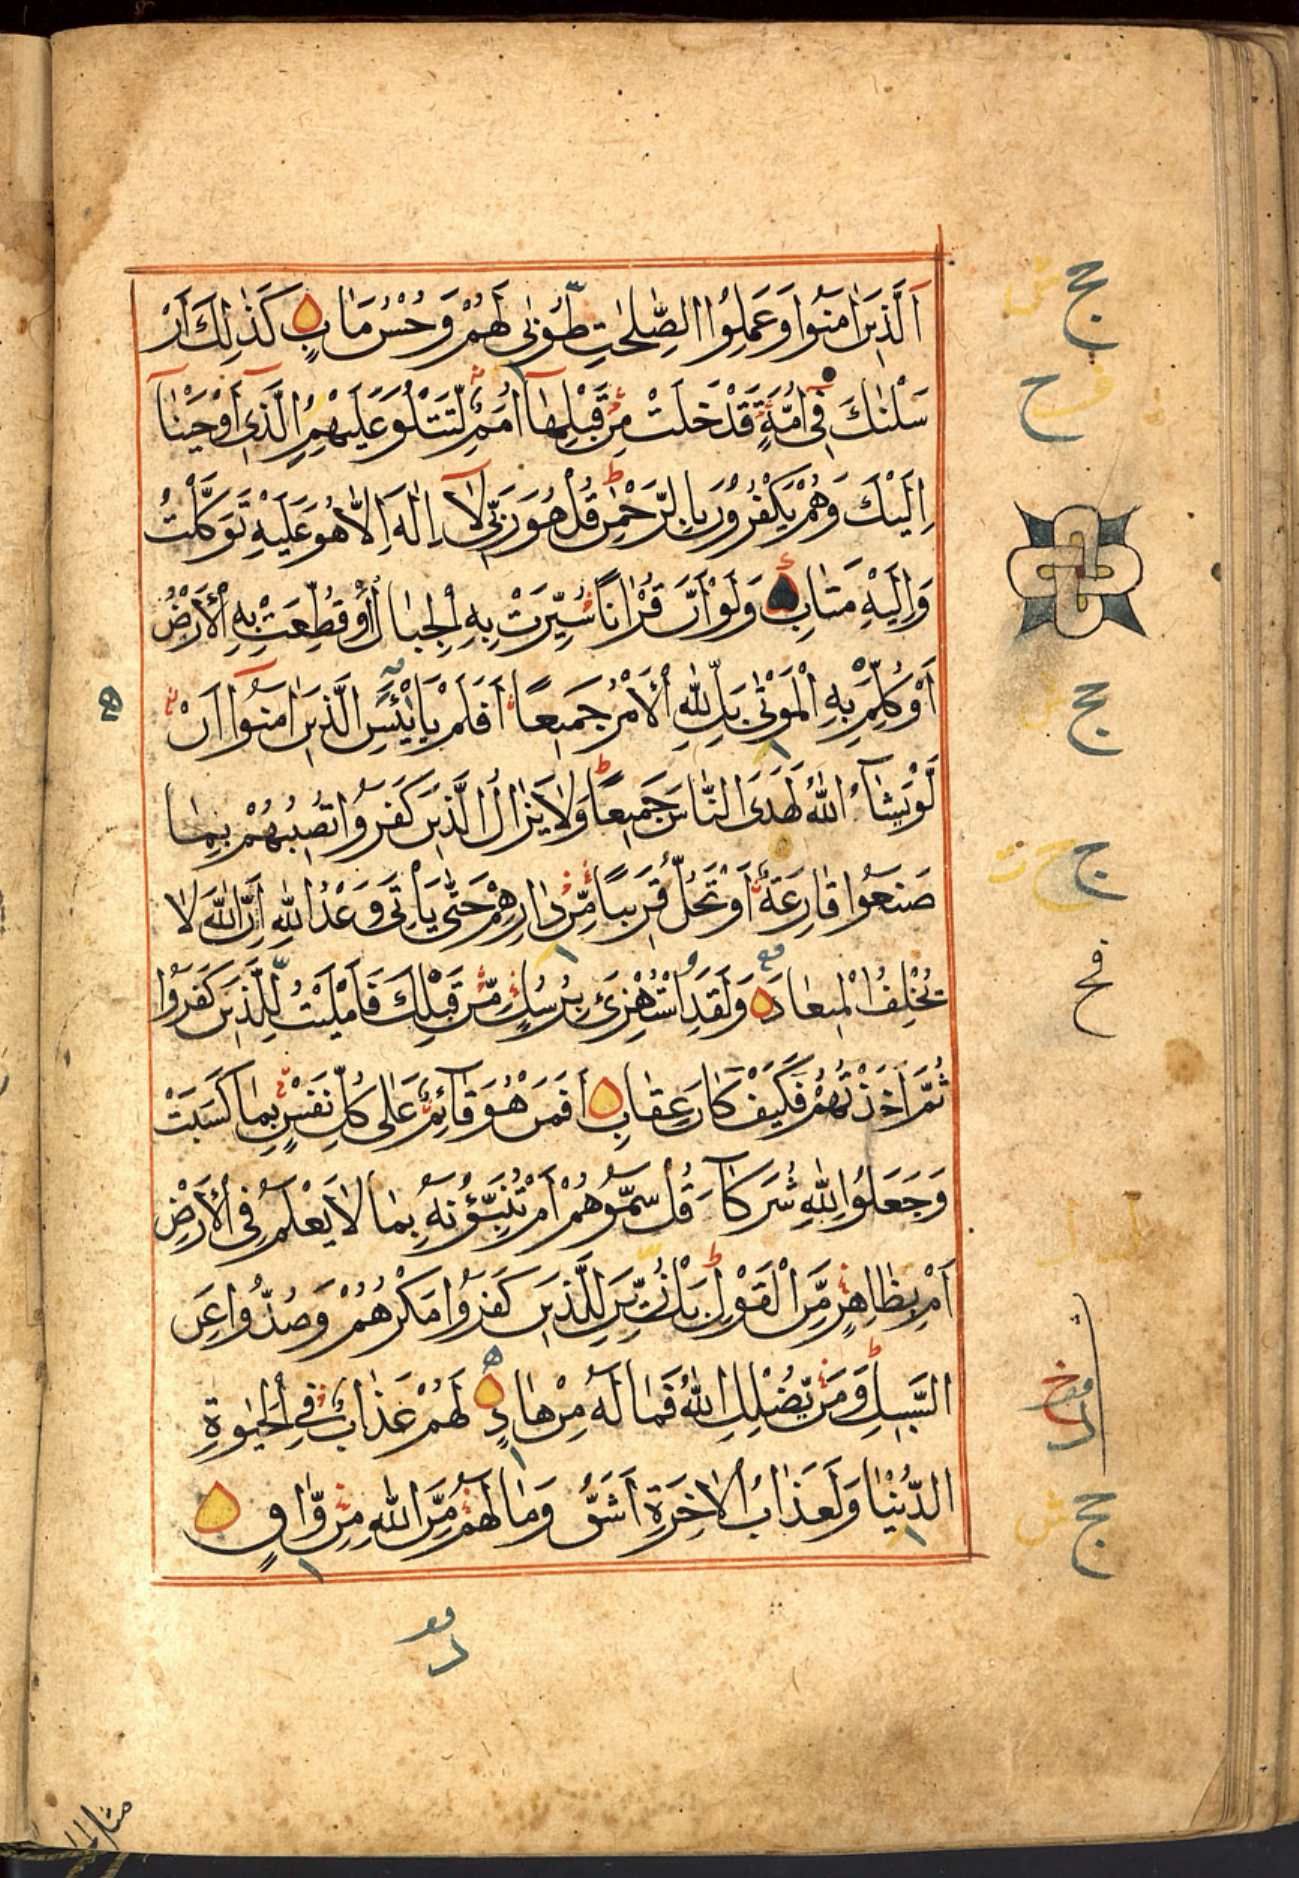 اَلَّذِيۡنَ اٰمَنُوۡا وَعَمِلُوا الصّٰلِحٰتِ طُوۡبٰى لَهُمۡ وَحُسۡنُ مَاٰبٍ كَذٰلِكَ اَرۡ
سَلۡنٰكَ فِىۡۤ اُمَّةٍ قَدۡ خَلَتۡ مِنۡ قَبۡلِهَاۤ اُمَمٌ لِّتَتۡلُوَ عَلَيۡهِمُ الَّذِىۡۤ اَوۡحَيۡنَاۤ
اِلَيۡكَ وَهُمۡ يَكۡفُرُوۡنَ بِالرَّحۡمٰنِ ط قُلۡ هُوَ رَبِّىۡ لَاۤ اِلٰهَ اِلَّا هُوَ عَلَيۡهِ تَوَكَّلۡتُ
وَاِلَيۡهِ مَتَابِ وَلَوۡ اَنَّ قُرۡاٰنًا سُيِّرَتۡ بِهِ الۡجِبَالُ اَوۡ قُطِّعَتۡ بِهِ الۡاَرۡضُ
اَوۡ كُلِّمَ بِهِ الۡمَوۡتٰى بَلۡ لِّلّٰهِ الۡاَمۡرُ جَمِيۡعًا اَفَلَمۡ يَايۡئَسِ الَّذِيۡنَ اٰمَنُوۡۤا اَنۡ
لَّوۡ يَشَآءُ اللّٰهُ لَهَدَى النَّاسَ جَمِيۡعًا ط وَلَا يَزَالُ الَّذِيۡنَ كَفَرُوۡا تُصِيۡبُهُمۡ بِمَا
صَنَعُوۡا قَارِعَةٌ اَوۡ تَحُلُّ قَرِيۡبًا مِّنۡ دَارِهِمۡ حَتّٰى يَاۡتِىَ وَعۡدُ اللّٰهِ اِنَّ اللّٰهَ لَا
يُخۡلِفُ الۡمِيۡعَادَ وَلَقَدِ اسۡتُهۡزِئَ بِرُسُلٍ مِّنۡ قَبۡلِكَ فَاَمۡلَيۡتُ لِلَّذِيۡنَ كَفَرُوۡا
ثُمَّ اَخَذۡتُهُمۡ فَكَيۡفَ كَانَ عِقَابِ اَفَمَنۡ هُوَ قَآئِمٌ عَلٰى كُلِّ نَفۡسٍ بِمَا كَسَبَتۡ
وَجَعَلُوۡا لِلّٰهِ شُرَكَآءَ قُلۡ سَمُّوۡهُمۡ اَمۡ تُنَبِّؤُنَهٗ بِمَا لَا يَعۡلَمُ فِى الۡاَرۡضِ
اَمۡ بِظَاهِرٍ مِّنَ الۡقَوۡلِ ط بَلۡ زُيِّنَ لِلَّذِيۡنَ كَفَرُوۡا مَكۡرُهُمۡ وَصُدُّوۡا عَنِ
السَّبِيۡلِ ط وَمَنۡ يُّضۡلِلِ اللّٰهُ فَمَا لَهٗ مِنۡ هَادٍ لَهُمۡ عَذَابٌ فِى الۡحَيٰوةِ
الدُّنۡيَا وَلَعَذَابُ الۡاٰخِرَةِ اَشَقُّ وَمَا لَهُمۡ مِّنَ اللّٰهِ مِنۡ وَّاقٍ